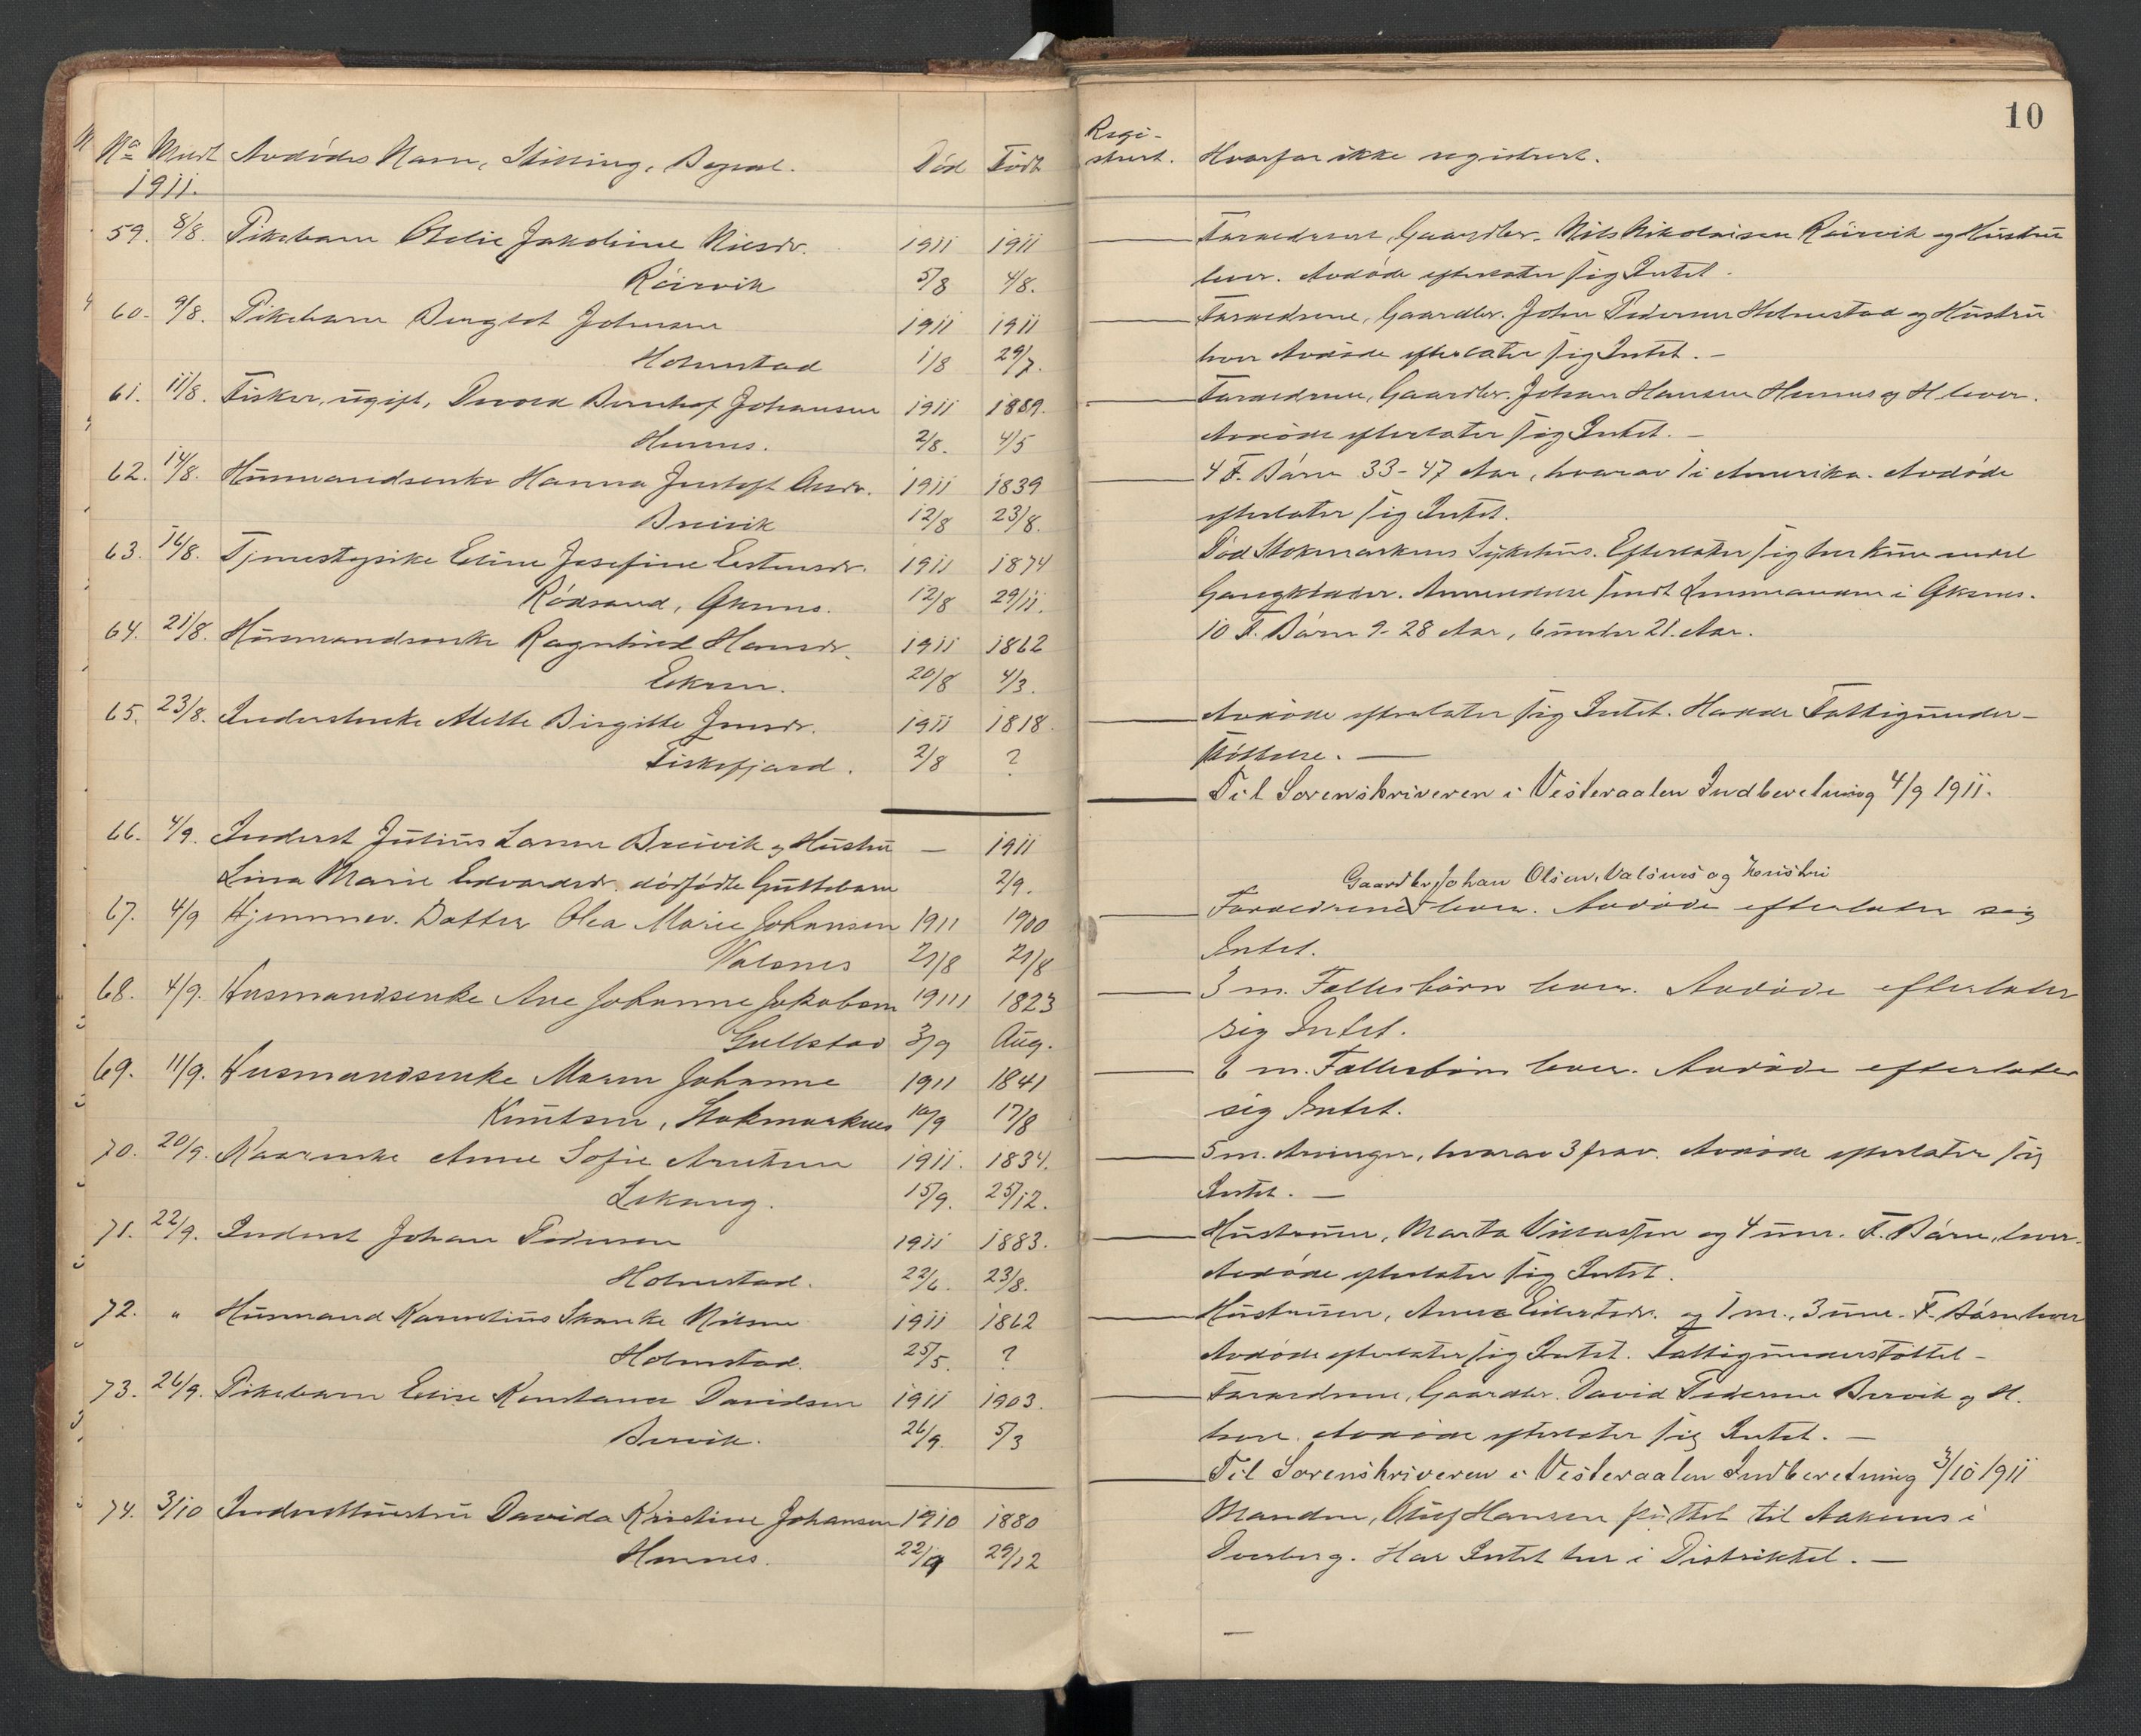 10
No Meldt Avdødes Navn, Stilling, Bopæl. Død Født
Regi-
strert. Hvorfor ikke registrert.
1911.
59. 8/8. Pikebarn Otelie Jakobine Nilsdr. 1911 1911
Forældrene, Gaardbr. Nils Nikolaisen Röirvik og Hustru
Röirvik 5/8 4/8.
lever. Avdøde efterlater sig Intet.
60. 9/8. Pikebarn Bergljot Johnsen 1911 1911
Forældrene, Gaardbr. John Pedersen Holmstad og Hustru
Holmstad 1/8 29/7.
lever Avdøde efterlater sig Intet. —
61. 11/8. Fisker, ugift, Bernhof Johansen 1911 1889.
Forældrene, Gaardbr. Johan Hansen Hennes og H. lever.
Hennes. 2/8. 4/5
Avdøde efterlater sig Intet. —
62. 14/8. Husmandsenke Hanna Andr. 1911 1839
4 F. Børn 33-47 Aar, hvorav 1 i Amerika. Avdøde
Breivik 12/8 23/8.
efterlater sig Intet.
63. 16/8. Tjenestepike Eline Josefine Estensdr. 1911 1874
Død Stokmarknes Sykehus. Efterlater sig her kun endel
Rødsand, Øksnes. 12/8 29/11.
Gangklæder. Anmeldelse sendt Lensmanden i Øksnes.
64. 21/8. Husmandsenke Ragnhild Hansdr. 1911 1862
10 F. Børn 9-28 Aar, 6 under 21. Aar.
20/8 4/3.
65. 23/8. Inderstenke Mette Birgitte Jensdr. 1911 1818.
Avdøde efterlater sig Intet. Hadde Fattigunder-
Fiskefjord. 2/8 ?
støttelse. —
Til Sorenskriveren i Vesteraalen Indberetning 4/9 1911.
66. 4/9. Inderst Julius Larsen Breivik og Hustru — 1911
Lina Marie Edvardsdr. dødfødte Guttebarn 2/9.
Gaardbr. Johan Olsen, Valsnes og Hustru
67. 4/9 Hjemmev. Datter Olea Marie Johansen 1911 1900
Forældrene lever. Avdøde efterlater sig
Valsnes 21/8 21/8
Intet.
68. 4/9. Husmandsenke Ane Johanne Jakobsen 1911 1823
3 m. Fællesbørn lever. Avdøde efterlater
Gullstad 3/9 Aug.
sig Intet.
69. 11/9. Husmandsenke Maren Johanne 1911 1841
6 m. Fællesbørn lever. Avdøde efterlater
Knutsen, Stokmarknes 10/9 17/8
sig Intet.
70. 20/9. Kaarenke Anne Sofie Arntsen 1911. 1834.
5 m. Arvinger, hvorav 3 frav. Avdøde efterlater sig
Lekang. 15/9. 25/12.
Intet. —
71. 22/9. Inderst Johan Pedersen 1911 1883.
Hustruen, Marta og 4 um. F. Børn, lever.
Holmstad. 22/6. 23/8.
Avdøde efterlater sig Intet.
72. " Husmand Kornelius Skanke Nilsen 1911 1862
Hustruen, Anna Eilertsdr. og 1 m., 3 um. F. Børn lever
Holmstad. 25/5. ?
Avdøde efterlater sig Intet. Fattigunderstøttet —
73. 26/9. Pikebarn Elise Konstance Davidsen 1911 1903.
Forældrene, Gaardbr. David Pedersen Bervik og H.
Bervik. 26/9. 5/3
lever. Avdøde efterlater sig Intet. —
Til Sorenskriveren i Vesteraalen Indberetning 3/10 1911
74. 3/10 Insterhustru Davida Kristine Johansen 1910 1880
Manden, Oluf Hansen flyttet til Aaknes i
Hennes. 22/9 29/12
Dverberg. Har Intet her i Distriktet. —